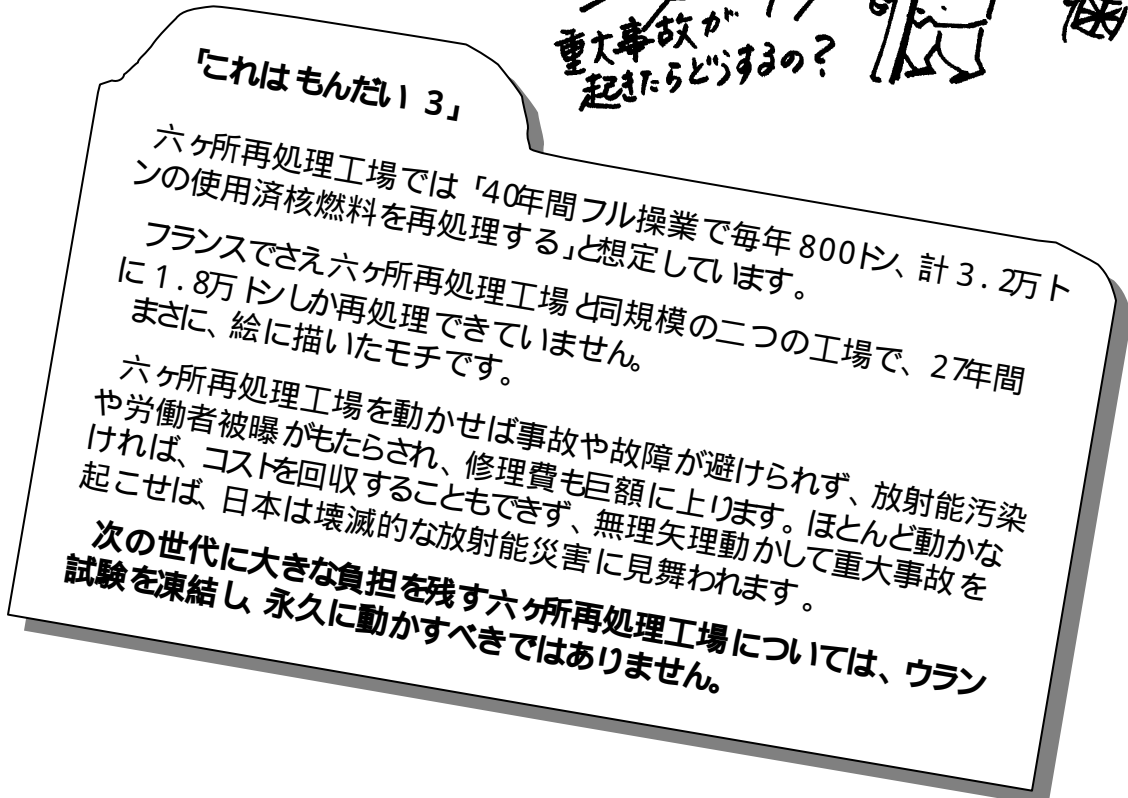 重大事故が
起きたらどうするの？
「これは もんだい 3」
六ヶ所再処理工場では「40年間フル操業で毎年800トン、計3.2万ト
ンの使用済核燃料を再処理する」と想定しています。
フランスでさえ六ヶ所再処理工場と同規模の二つの工場で、27年間
に1.8万トンしか再処理できていません。
まさに、絵に描いたモチです。
六ヶ所再処理工場を動かせば事故や故障が避けられず、放射能汚染
や労働者被曝がもたらされ、修理費も巨額に上ります。ほとんど動かな
ければ、コストを回収することもできず、無理矢理動かして重大事故を
起こせば、日本は壊滅的な放射能災害に見舞われます。
次の世代に大きな負担を残す六ヶ所再処理工場については、ウラン
試験を凍結し、永久に動かすべきではありません。